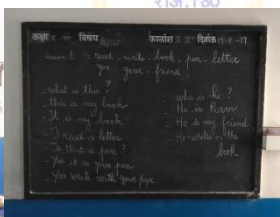 कक्षा विषय कालांश दिनांक
read - write - book - pen - letter
you - your - friend
what is this ?
this is my book
It is my book
I read a letter
Is that a pen ?
Yes it is your pen
You write with your pen
who is he ?
He is Ram
He is my friend
He writes in the
book